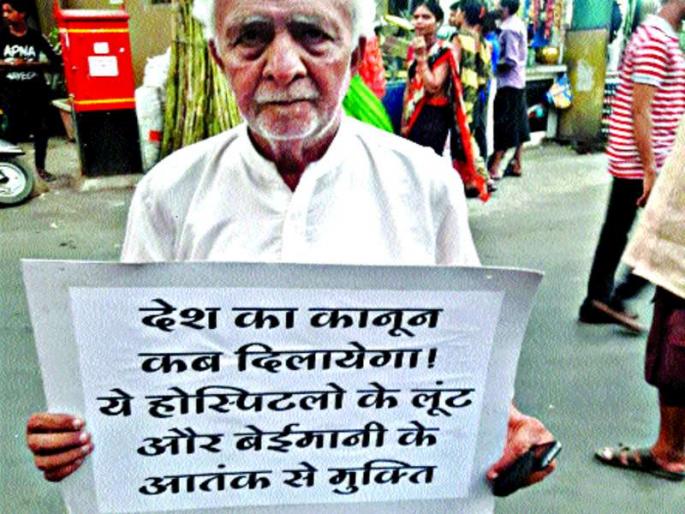 APNA
देश का कानून
कब दिलायेगा!
ये होस्पिटलो के लूंट
और बेईमानी के
आतंक से मुक्ति